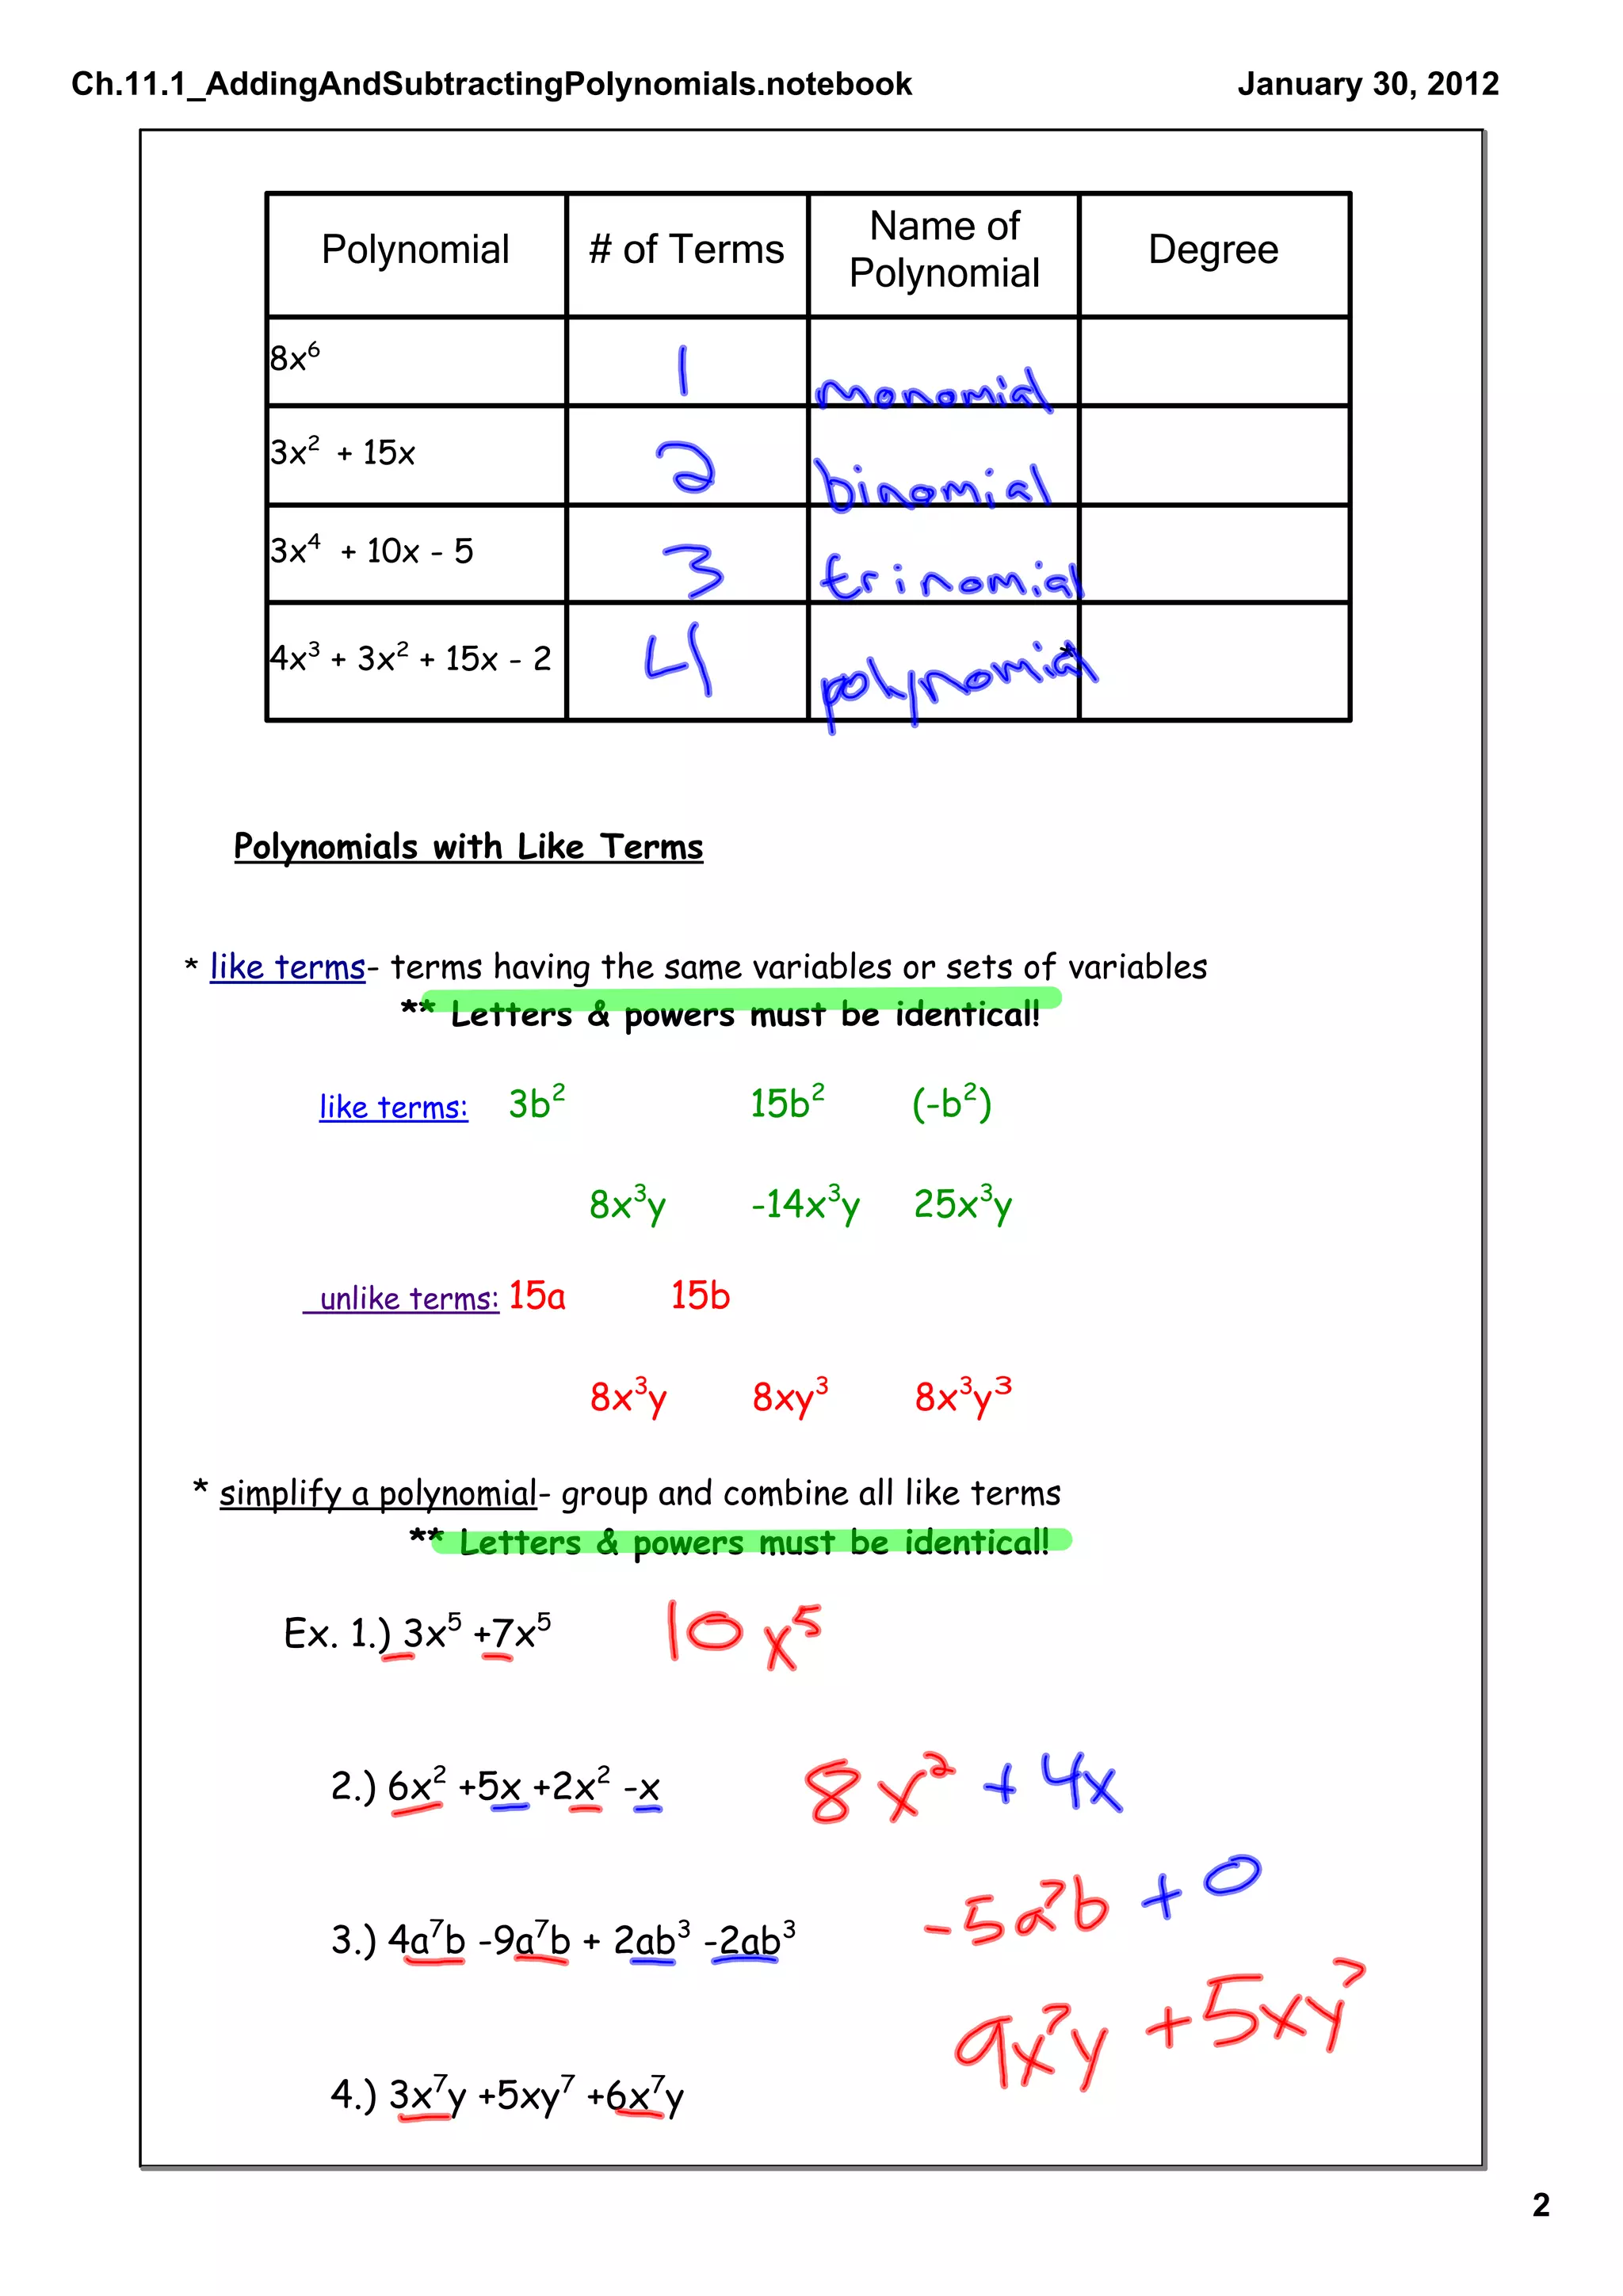 Ch.11.1_AddingAndSubtractingPolynomials.notebook January 30, 2012
Polynomial # of Terms Name of Polynomial Degree
8x⁶ 1 monomial
3x² + 15x 2 binomial
3x⁴ + 10x - 5 3 trinomial
4x³ + 3x² + 15x - 2 4 polynomial *
Polynomials with Like Terms
* like terms- terms having the same variables or sets of variables
** Letters & powers must be identical!
like terms: 3b² 15b² (-b²)
8x³y -14x³y 25x³y
unlike terms: 15a 15b
8x³y 8xy³ 8x³y³
* simplify a polynomial- group and combine all like terms
** Letters & powers must be identical!
Ex. 1.) 3x⁵ +7x⁵ 10x⁵
2.) 6x² +5x +2x² -x 8x² + 4x
3.) 4a⁷b -9a⁷b + 2ab³ -2ab³ -5a⁷b + 0
4.) 3x⁷y +5xy⁷ +6x⁷y 9x⁷y +5xy⁷
2